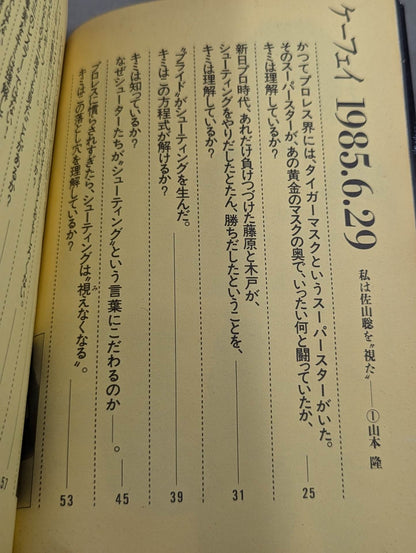 ケーフェイ 1985.6.29
私は佐山聡を“視た”――①山本 隆
かつてプロレス界には、タイガーマスクというスーパースターがいた。
そのスーパースターが、あの黄金のマスクの奥で、いったい何と闘っていたか、
キミは理解しているか? ―― 25
新日プロ時代、あれだけ負けつづけた藤原と木戸が、
シューティングをやりだしたとたん、勝ちだしたということを、
キミは理解しているか? ―― 31
“プライド”がシューティングを生んだ。
キミはこの方程式が解けるか? ―― 39
キミは知っているか?
なぜシューターたちが“シューティング”という言葉にこだわるのか――。 ―― 45
プロレスに慣らされすぎたら、シューティングは“視えなくなる”。
キミはこの落とし穴を理解しているか? ―― 53
57